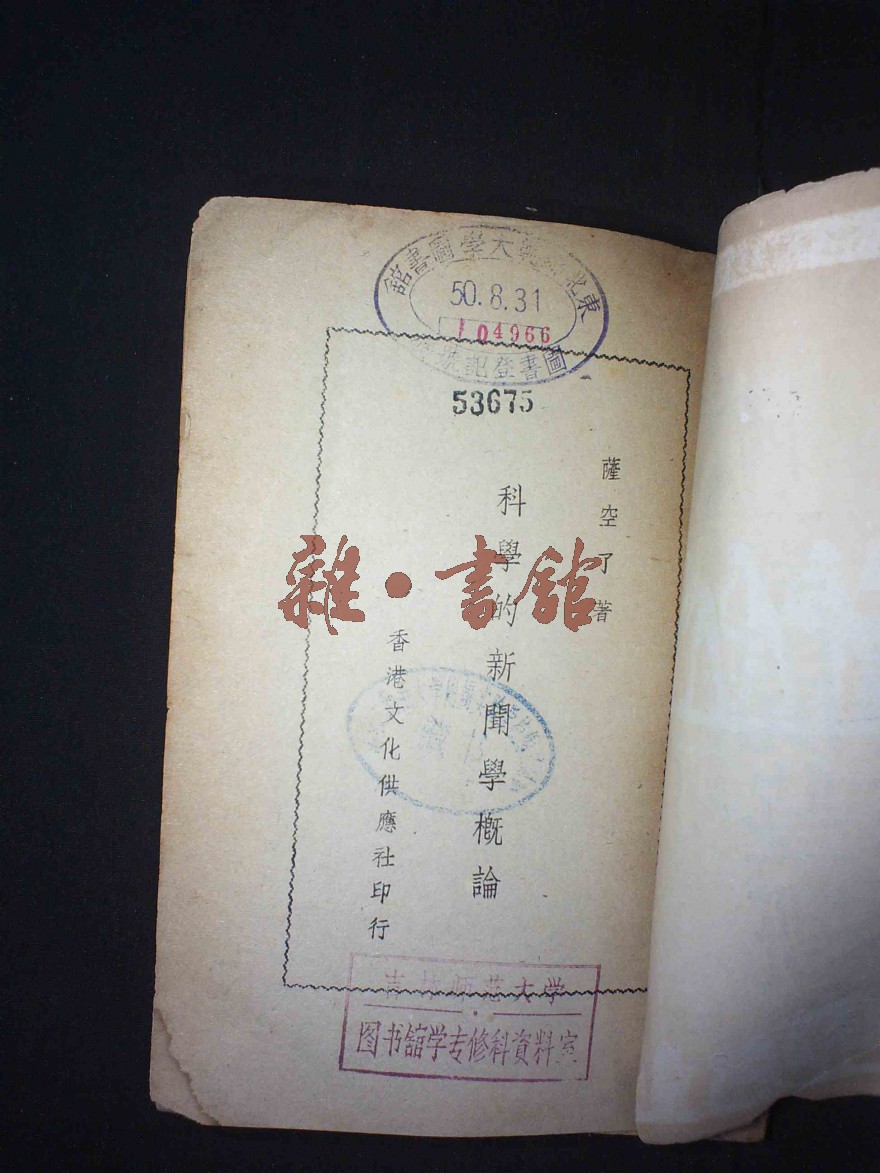 東北師範大學圖書館
50.8.31
104966
圖書登記號
53675
薩空了著
科學的新聞學概論
香港文化供應社印行
雜·書館
吉林师范大学
图书舘学专修科資料室